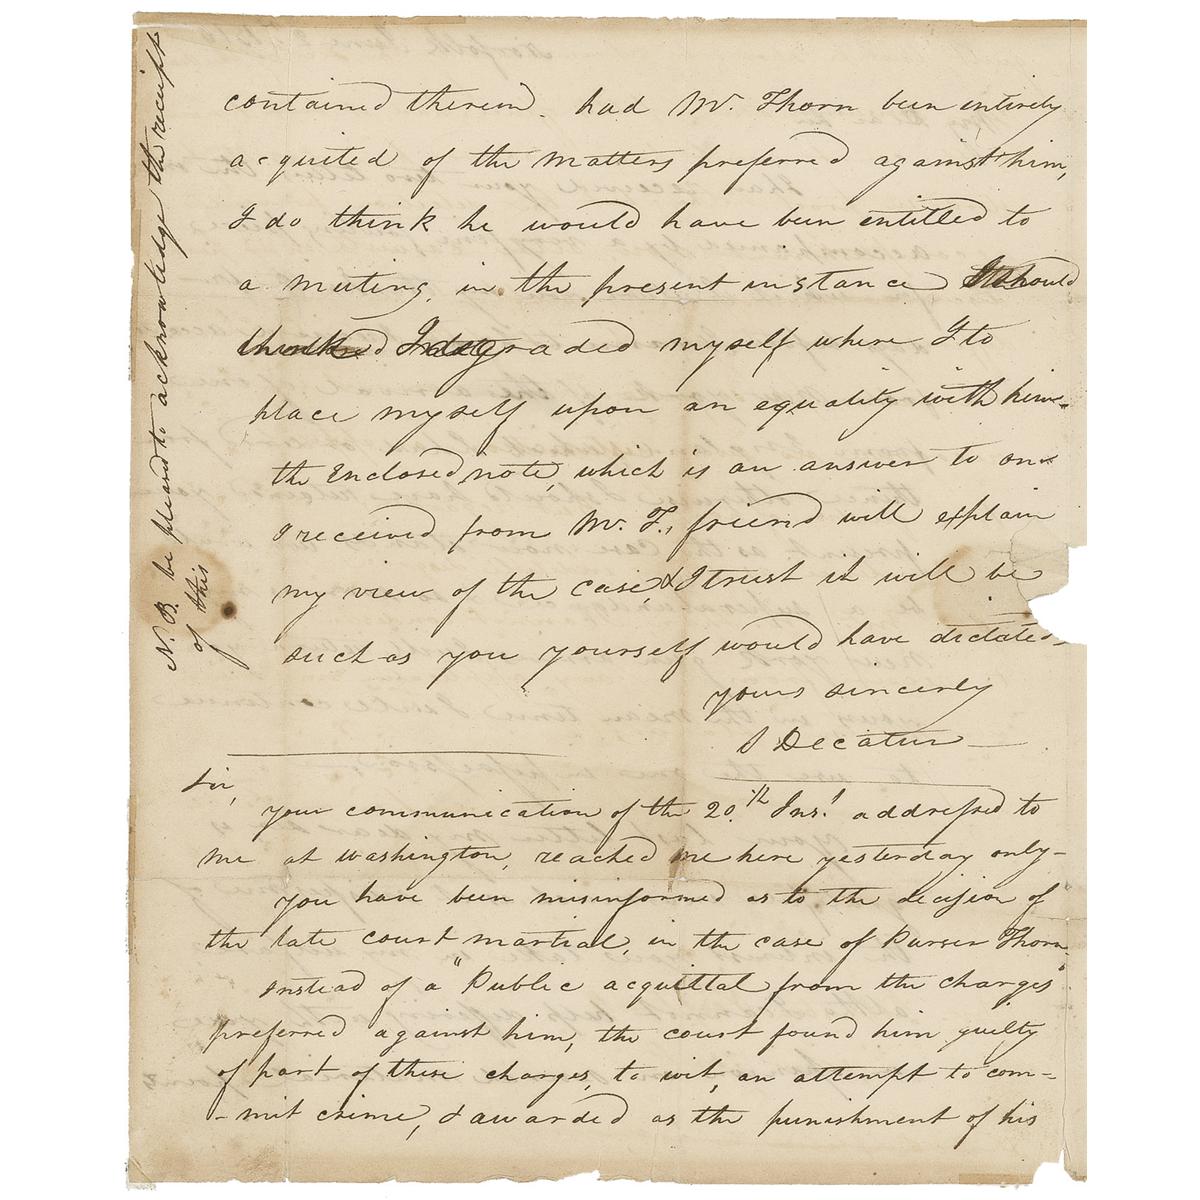 contained therein. had Mr. Thorn been entirely
acquited of the matters preferred against him,
I do think he would have been entitled to
a meeting, in the present instance I should
degraded myself where I to
place myself upon an equality with him-
the Enclosed note, which is an answer to one
I received from Mr. T., friend will explain
my view of the case, & I trust it will be
such as you yourself would have dictated-
yours sincerely
S Decatur
Sir,
your communication of the 20.th Ins.t addressed to
me at Washington, reached me here yesterday only-
you have been misinformed as to the decision of
the late court martial, in the case of Purser Thorn
Instead of a "Public acquittal from the charges"
preferred against him, the court found him guilty
of part of these charges, to wit, an attempt to com-
-mit crime, & awarded as the punishment of his
N.B. be pleased to acknowledge the receipt
of this